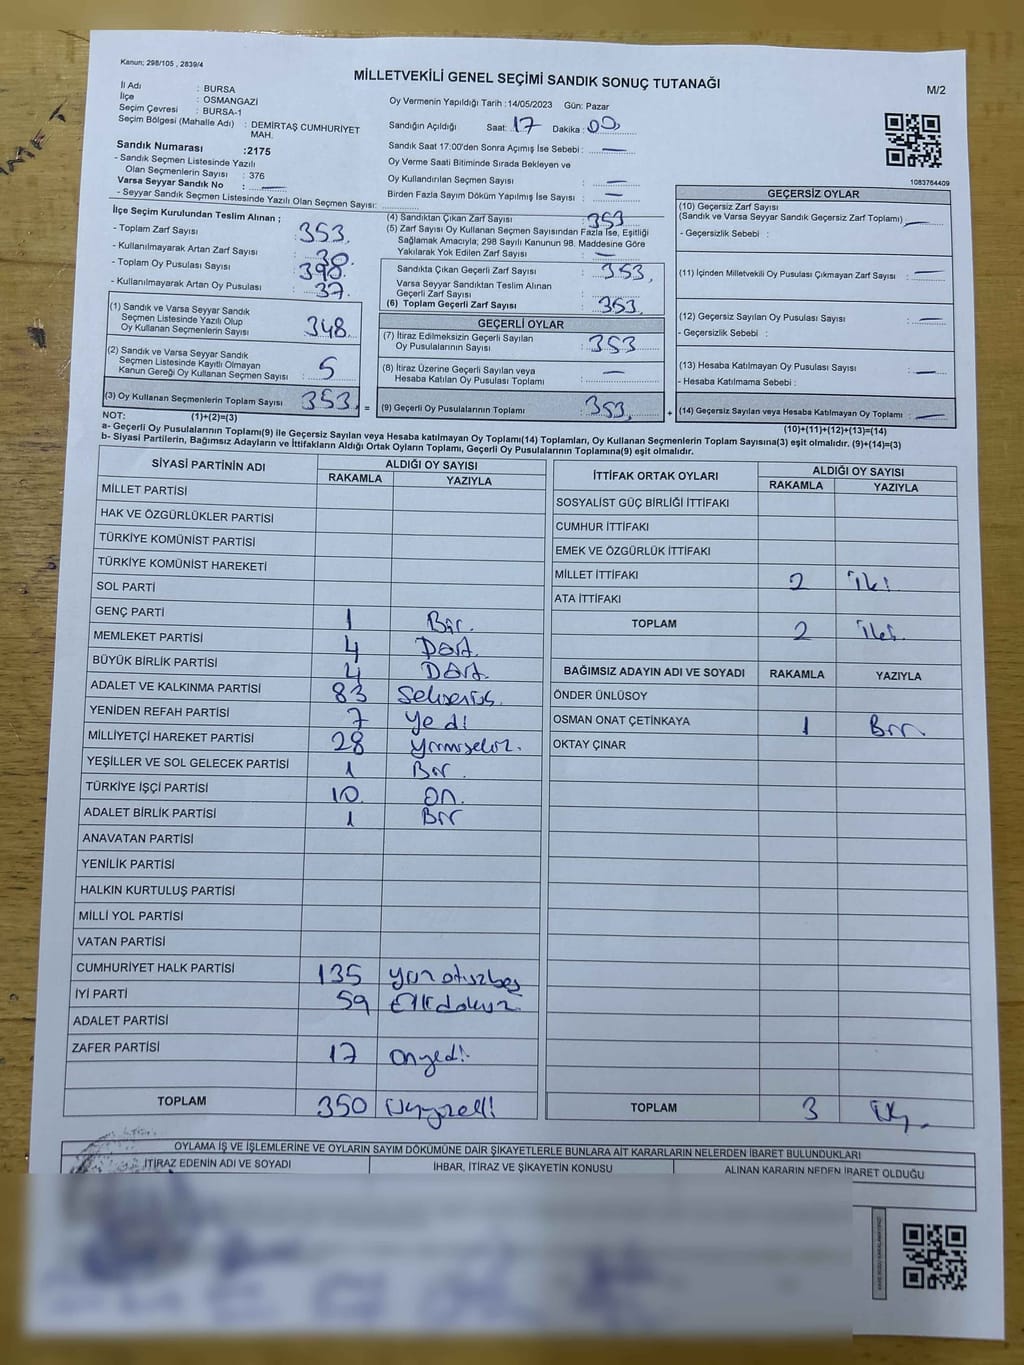 Kanun; 298/105 , 2839/4
MİLLETVEKİLİ GENEL SEÇİMİ SANDIK SONUÇ TUTANAĞI
M/2
İl Adı : BURSA
İlçe : OSMANGAZİ
Seçim Çevresi : BURSA-1
Seçim Bölgesi (Mahalle Adı) : DEMİRTAŞ CUMHURİYET MAH.
Sandık Numarası :2175
- Sandık Seçmen Listesinde Yazılı
Olan Seçmenlerin Sayısı : 376
Varsa Seyyar Sandık No : —
- Seyyar Sandık Seçmen Listesinde Yazılı Olan Seçmen Sayısı:
Oy Vermenin Yapıldığı Tarih :14/05/2023 Gün: Pazar
Sandığın Açıldığı Saat: 17 Dakika : 00
Sandık Saat 17:00'den Sonra Açımış İse Sebebi : —
Oy Verme Saati Bitiminde Sırada Bekleyen ve
Oy Kullandırılan Seçmen Sayısı : —
Birden Fazla Sayım Döküm Yapılmış İse Sayısı : —
1083764409
İlçe Seçim Kurulundan Teslim Alınan ;
- Toplam Zarf Sayısı : 353
- Kullanılmayarak Artan Zarf Sayısı : 30
- Toplam Oy Pusulası Sayısı : 398
- Kullanılmayarak Artan Oy Pusulası : 37
(1) Sandık ve Varsa Seyyar Sandık
Seçmen Listesinde Yazılı Olup
Oy Kullanan Seçmenlerin Sayısı 348
(2) Sandık ve Varsa Seyyar Sandık
Seçmen Listesinde Kayıtlı Olmayan
Kanun Gereği Oy Kullanan Seçmen Sayısı : 5
(3) Oy Kullanan Seçmenlerin Toplam Sayısı 353 =
(4) Sandıktan Çıkan Zarf Sayısı : 353
(5) Zarf Sayısı Oy Kullanan Seçmen Sayısından Fazla İse, Eşitliği
Sağlamak Amacıyla; 298 Sayılı Kanunun 98. Maddesine Göre
Yakılarak Yok Edilen Zarf Sayısı : —
Sandıkta Çıkan Geçerli Zarf Sayısı : 353
Varsa Seyyar Sandıktan Teslim Alınan
Geçerli Zarf Sayısı :
(6) Toplam Geçerli Zarf Sayısı : 353
GEÇERLİ OYLAR
(7) İtiraz Edilmeksizin Geçerli Sayılan
Oy Pusulalarının Sayısı : 353
(8) İtiraz Üzerine Geçerli Sayılan veya
Hesaba Katılan Oy Pusulası Toplamı : —
(9) Geçerli Oy Pusulalarının Toplamı : 353 +
GEÇERSİZ OYLAR
(10) Geçersiz Zarf Sayısı
(Sandık ve Varsa Seyyar Sandık Geçersiz Zarf Toplamı) —
- Geçersizlik Sebebi :
(11) İçinden Milletvekili Oy Pusulası Çıkmayan Zarf Sayısı : —
(12) Geçersiz Sayılan Oy Pusulası Sayısı : —
- Geçersizlik Sebebi :
(13) Hesaba Katılmayan Oy Pusulası Sayısı : —
- Hesaba Katılmama Sebebi :
(14) Geçersiz Sayılan veya Hesaba Katılmayan Oy Toplamı : —
NOT: (1)+(2)=(3)
(10)+(11)+(12)+(13)=(14)
a- Geçerli Oy Pusulalarının Toplamı(9) ile Geçersiz Sayılan veya Hesaba katılmayan Oy Toplamı(14) Toplamları, Oy Kullanan Seçmenlerin Toplam Sayısına(3) eşit olmalıdır. (9)+(14)=(3)
b- Siyasi Partilerin, Bağımsız Adayların ve İttifakların Aldığı Ortak Oyların Toplamı, Geçerli Oy Pusulalarının Toplamına(9) eşit olmalıdır.
SİYASİ PARTİNİN ADI ALDIĞI OY SAYISI
RAKAMLA YAZIYLA
MİLLET PARTİSİ
HAK VE ÖZGÜRLÜKLER PARTİSİ
TÜRKİYE KOMÜNİST PARTİSİ
TÜRKİYE KOMÜNİST HAREKETİ
SOL PARTİ
GENÇ PARTİ 1 Bir.
MEMLEKET PARTİSİ 4 Dört
BÜYÜK BİRLİK PARTİSİ 4 Dört
ADALET VE KALKINMA PARTİSİ 83 Seksenüç
YENİDEN REFAH PARTİSİ 7 Yedi
MİLLİYETÇİ HAREKET PARTİSİ 28 Yirmisekiz.
YEŞİLLER VE SOL GELECEK PARTİSİ 1 Bir.
TÜRKİYE İŞÇİ PARTİSİ 10 On.
ADALET BİRLİK PARTİSİ 1 Bir
ANAVATAN PARTİSİ
YENİLİK PARTİSİ
HALKIN KURTULUŞ PARTİSİ
MİLLİ YOL PARTİSİ
VATAN PARTİSİ
CUMHURİYET HALK PARTİSİ 135 Yüzotuzbeş
İYİ PARTİ 59 Ellidokuz
ADALET PARTİSİ
ZAFER PARTİSİ 17 Onyedi.
TOPLAM 350 Üçyüzelli
İTTİFAK ORTAK OYLARI ALDIĞI OY SAYISI
RAKAMLA YAZIYLA
SOSYALİST GÜÇ BİRLİĞİ İTTİFAKI
CUMHUR İTTİFAKI
EMEK VE ÖZGÜRLÜK İTTİFAKI
MİLLET İTTİFAKI 2 İki
ATA İTTİFAKI
TOPLAM 2 İki.
BAĞIMSIZ ADAYIN ADI VE SOYADI RAKAMLA YAZIYLA
ÖNDER ÜNLÜSOY
OSMAN ONAT ÇETİNKAYA 1 Bir
OKTAY ÇINAR
TOPLAM 3 Üç.
OYLAMA İŞ VE İŞLEMLERİNE VE OYLARIN SAYIM DÖKÜMÜNE DAİR ŞİKAYETLERLE BUNLARA AİT KARARLARIN NELERDEN İBARET BULUNDUKLARI
İTİRAZ EDENİN ADI VE SOYADI İHBAR, İTİRAZ VE ŞİKAYETİN KONUSU ALINAN KARARIN NEDEN İBARET OLDUĞU